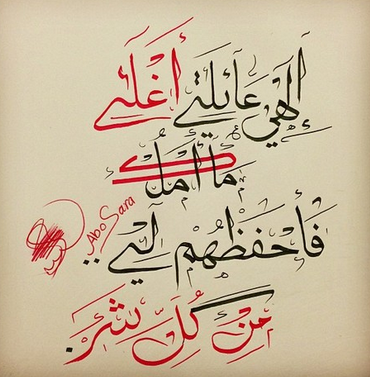 إلهي عائلتي أغلى
ما أملك
فاحفظهم لي..
من كل شر.
Abo Sara